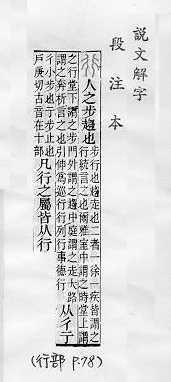 說文解字
段注本
行
人之步趨也
步行也趨走也二者一徐一疾皆謂之
行統言之也爾雅室中謂之時堂上謂
之行堂下謂之步門外謂之趨中庭謂之走大路
謂之奔析言之也引伸爲巡行行列行事德行
从彳亍
彳小步也亍步止也
戶庚切古音在十部
凡行之屬皆从行
(行部 P.78)